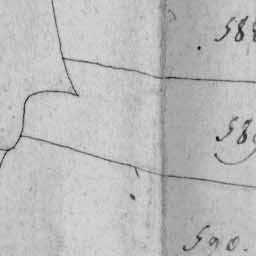 588
589
590.